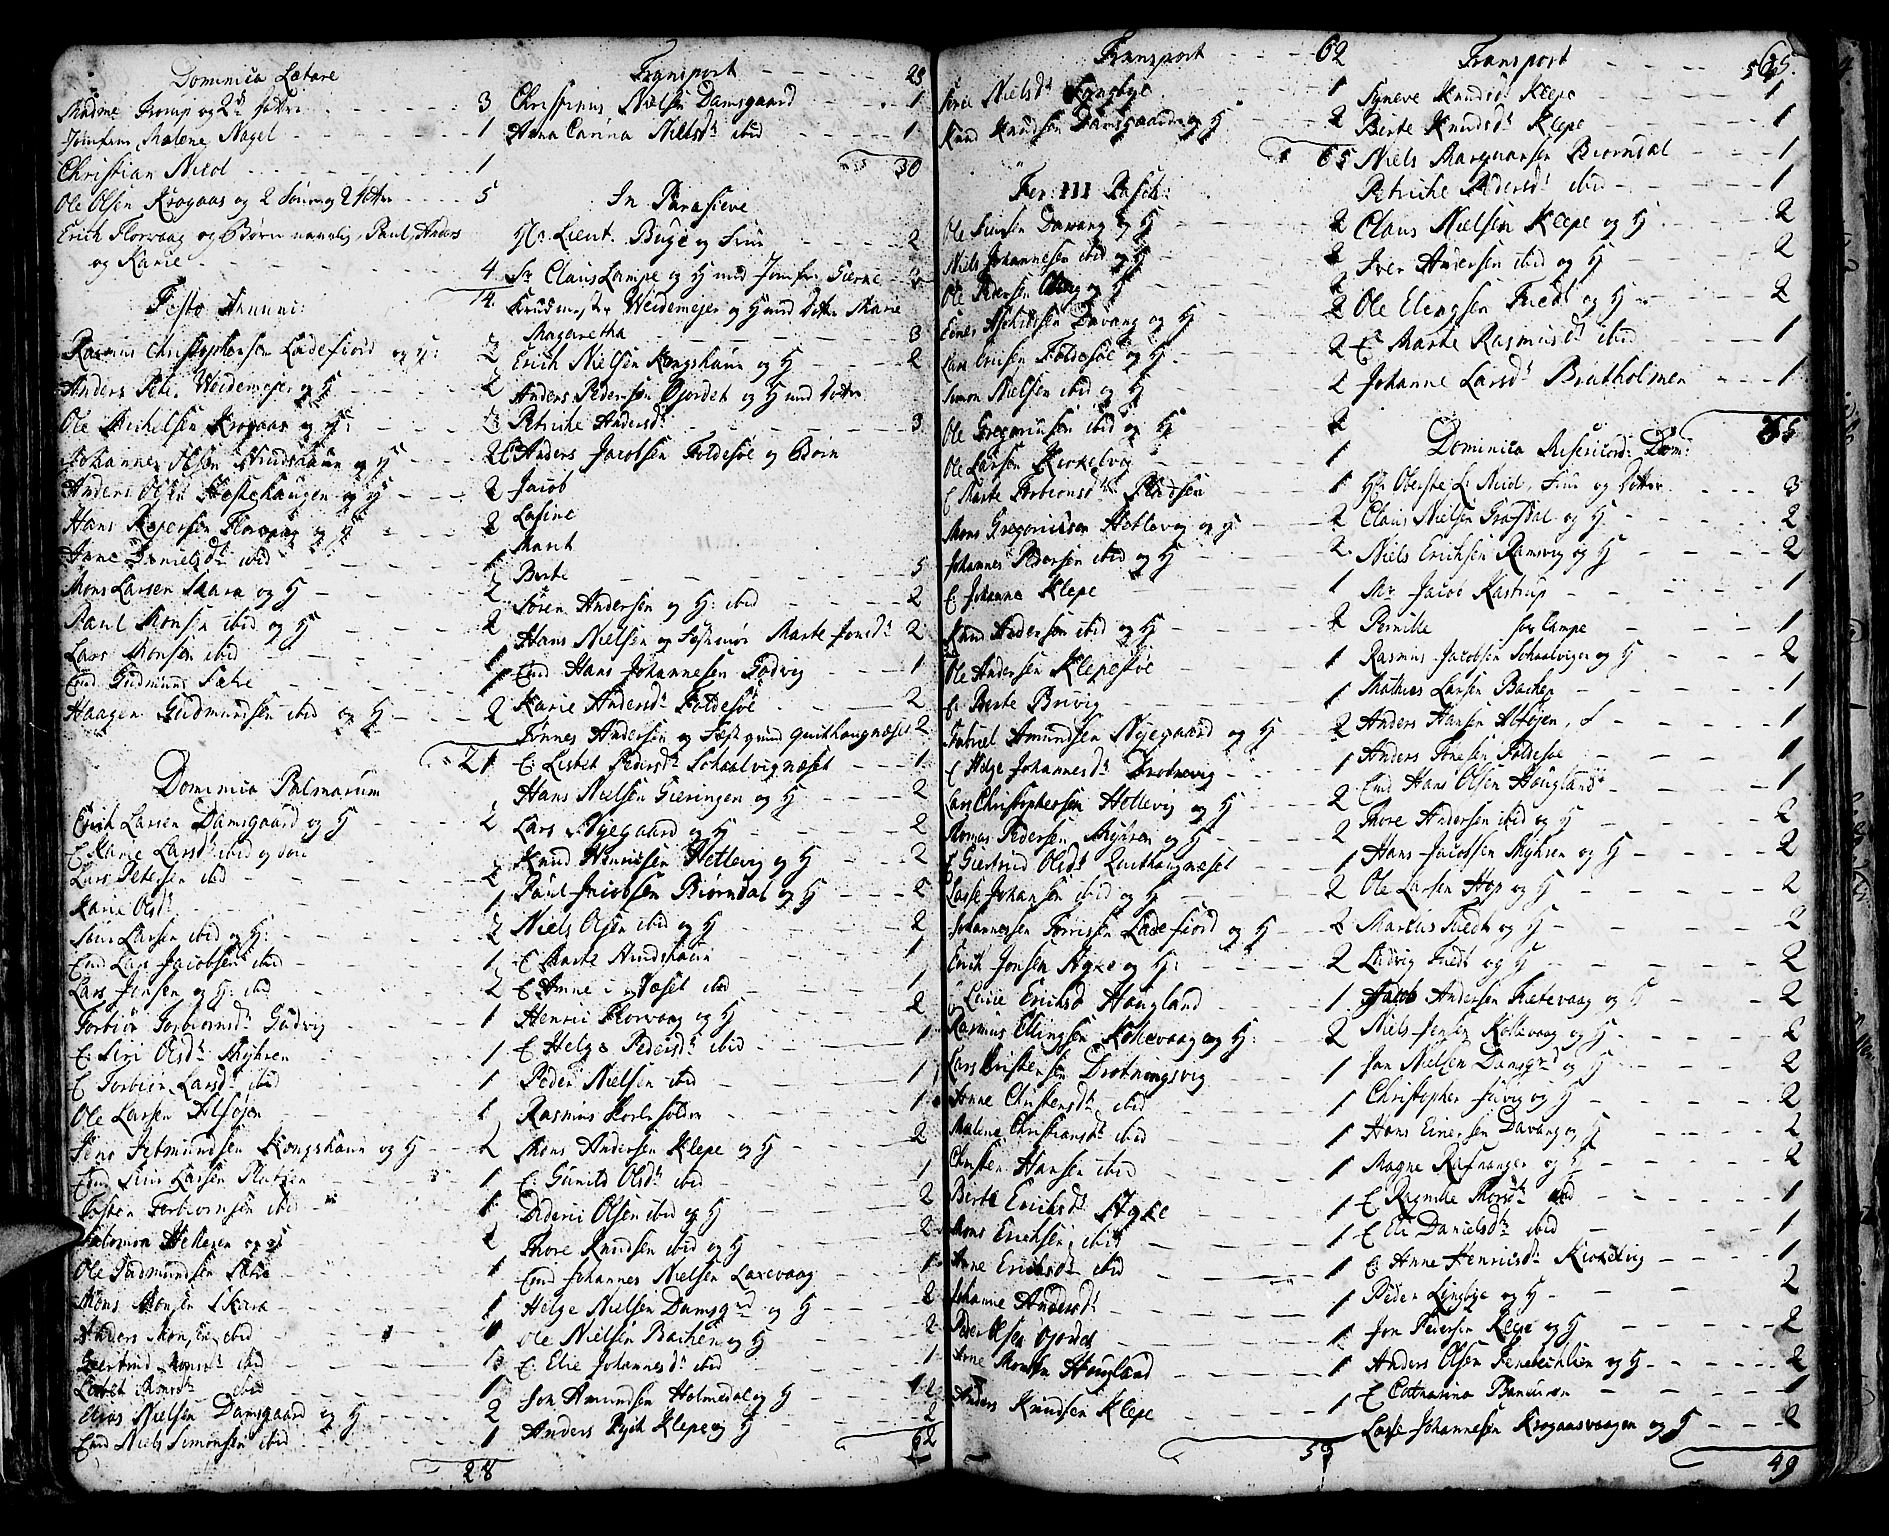 Dominica Lætare
Madme Krorup og 2 d. døttre 3
Jomfrue Malene Nagel 1
Christian Nicol 1
Ole Olsen Krogaas og 2 Sönner og 2 døttre 5
Erich Florvaag og Børn navnlig, Paul, Anders
og Karie 4
14
Festo Annunc:
Rasmus Christophersen Ladefiord og H: 2
Anders Pet: Weidemejer og H 2
Ole Michelsen Krogaas og H: 2
Johannes Olsen Strudshavn og H 2
Anders Olsen Hestehaugen og H 2
Hans Florvaag og H 2
Anne Danielsdr ibid 1
Mons Larsen Skara og H 2
Paul Monsen ibid og H 2
Lars Monsen ibid 1
Enm Gudmund Sætre 1
Haagen Gudmundsen ibid og H 2
21
Dominica Palmarum
Erich Larsen Damsgaard og H 2
E Karie Larsdr ibid og datter 2
Lars Petersen ibid 2
Karie Olsdr 1
Siur Larsen ibid og H: 2
Enm Lars Jacobsen ibid 1
Lars Jensen og H: ibid 2
Torbiör Torbiornsdr Gudvig 1
E: Siri Olsdr Myhren 1
E Torbiör Larsdr ibid 1
Ole Larsen Alföjen 1
Jens Sebmundsen Kongshavn og H 2
Enm Siur Larsen Platsen 1
Torsten Torbiornsen ibid 1
Salomon Hellesen og H 2
Ole Gudmundsen Sætre 1
Mons Monsen Skara 1
Anders Monsen ibid 1
Giertrud Monsdr ibid 1
Lisbet Monsdr ibid 1
Elias Nielsen Damsgaard og H 2
Enm Niels Simonsen ibid 1
28
Transport 28
Christinus Nielsen Damsgaard 1
Anna Carina Nielsdr ibid 1
30
In Parasceve
Hr Lieut. Buge og Frue 2
Sr Claus Lampe og H med Jomfru Gierke 3
Krudmester Weidemejer og H med datter Marie
Magaretha 3
Erich Nielsen Kongshavn og H 2
Anders Pedersen Gjordet og H med dotter
Petriche Andersdr 3
E Anders Jacobsen Foldesöe og Börn
Jacob
Lasine
Marit
Berte 5
Sören Andersen og H: ibid 2
Hans Nielsen og Festemør Marte Jonsdr 2
Enm Hans Johannesen Gödvig 1
Karie Andersdr Foldesöe 2
Tönnes Andersen og Fæstequind Quithougnæset 2
E: Lisbet Pedersdr Schaalvignæset 1
Hans Nielsen Gieringen og H 2
Lars Nÿegaard og H 2
Knud Henricsen Hetlevig og H 2
Paul Jacobsen Biörndal og H 2
Niels Olsen ibid og H 2
E Marte Strudshavn 1
E Anne Næset ibid 1
Henric Florvaag og H 2
E Helge Pedersdr ibid 1
Peder Nielsen ibid 1
Rasmus Korbsölden 1
Mons Andersen Klepe og H 2
E: Gunild Olsdr ibid 1
Dideric Olsen ibid og H 2
Thore Knudsen ibid og H 2
Enm Johannes Nielsen Laxevaag 1
Helge Nielsen Damsgrd og H 2
Ole Nielsen Bachen og H 2
E: Elie Johannesdr ibid 1
Jon Amundsen Holmedal og H 2
Anders Pych Klepe og H 2
62
Transport 62
Siril Nielsdr Lyngbye 1
Knud Knudsen Damsgaard og H 2
65
Fer: III Pasch:
Ole Siursen Davang og H 2
Niels Johannesen ibid og H 2
Ole Petersen og H 2
Einer Davang og H 2
Lars Ericsen Foldesöe og H 2
Simon Nielsen ibid og H 2
Ole Gregoriusen ibid og H 2
Ole Larsen Kirkelvig 1
E Marte Torbiornsdr Pladsen 1
Mons Gregoriussen Hetlevog og H 2
Johannes Pedersen ibid og H 2
E Johanna Klepe 1
Knud Andersen ibid og H 2
Ole Andersen Klepesöe 1
E: Berte Brivig 1
Gabriel Amundsen Nyegaard og H 2
E Helge Johannesdr Drotnevig 1
Lars Christophersen Hetlevig og H 2
Thomas Pedersen Myhren og H 2
E Giertrud Olsdr Quithougnæset 1
Lasse Johansen ibid og H 2
Johannessen Torrisen Ladefiord og H 2
Erich Jonsen Ayke og H: 2
Lucie Erichsd Hougland 1
Rasmus Ellingsen Kollevaag og H: 2
Lars Christensen Drotningsvig 1
Anne Christensdr ibid 1
Malene Christiansdr ibid 1
Christen Hansen ibid 1
Berte Erichsdr Ayke 1
Mons Erichsen ibid 1
Anne Erichsdr ibid 1
Johanne Andersdr 1
Peder Olsen Gjordet 1
Arne Monsen Hougland 1
Anders Knudsen Klepe 1
59
Transport 59
Syneve Knudsdr Klepe 1
Berte Knudsdr Klepe 1
Niels Margusen Biorndal 1
Petriche Pedersdr ibid 1
Claus Nielsen Klepe og H 2
Iver Andersen ibid og H 2
Ole Elingsen Tuedt og H 2
E Marte Rasmusdr ibid 1
Johanne Larsdr Bratholmen 1
Dominica Misericord: Dom:
Hr Oberste L: Nicol, Frue og dotter 3
Claus Nielsen Grafdal og H 2
Niels Erichsen Ramsvig og H 2
Mr Jacob Kastrup 1
Pernille for Lampe 1
Rasmus Jacobsen Schaalvigen og H 2
Mathias Larsen Bachen 1
Anders Hansen Alföjen, S 1
Anders Tonesen Foldesöe 1
Enm Hans Olsen Hougland 1
Thore Andersen ibid og H 2
Hans Jacobsen Myhren og H 2
Ole Larsen Hop og H 2
Marcus Tuedt og H 2
Ludvig Tuedt og H 2
Jacob Andersen Tretevaag og H 2
Niels Jensen Kollevaag og H 2
Jan Nielsen Damsgrd og H 2
Christopher Juvig og H 2
Hans Einersen Davang og H 2
Magne Rafnanger og H 2
E Ragnille Thorsdr ibid 1
E Eli Danielsdr ibid 1
E: Anne Henricsdr Kirkelvig 1
Peder Lyngbye og H 2
Jon Pedersen Klepe og H 2
Anders Olsen Fenebechlien og H 2
E Catharina Bancuren 1
Lasse Johannesen Krogaasvaagen og H 2
49